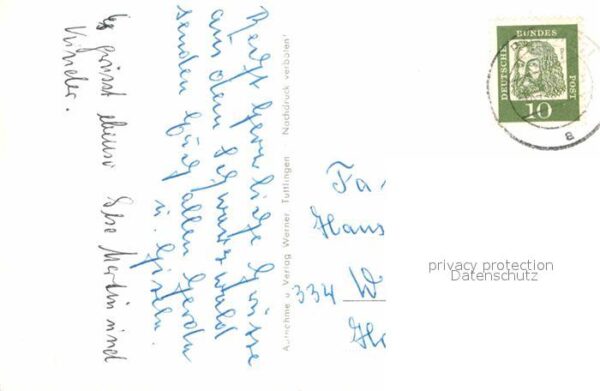 Recht herzliche Grüsse
aus dem Schwarzwald
senden Euch allen Gerda
u. Gisela.
Es grüsst ebenso Else Martin und
Kinder.
Aufnahme u. Verlag Werner Tuttlingen · Nachdruck verboten!
DEUTSCHE BUNDESPOST
10
a
Fa
Hans
334 W
privacy protection
Datenschutz